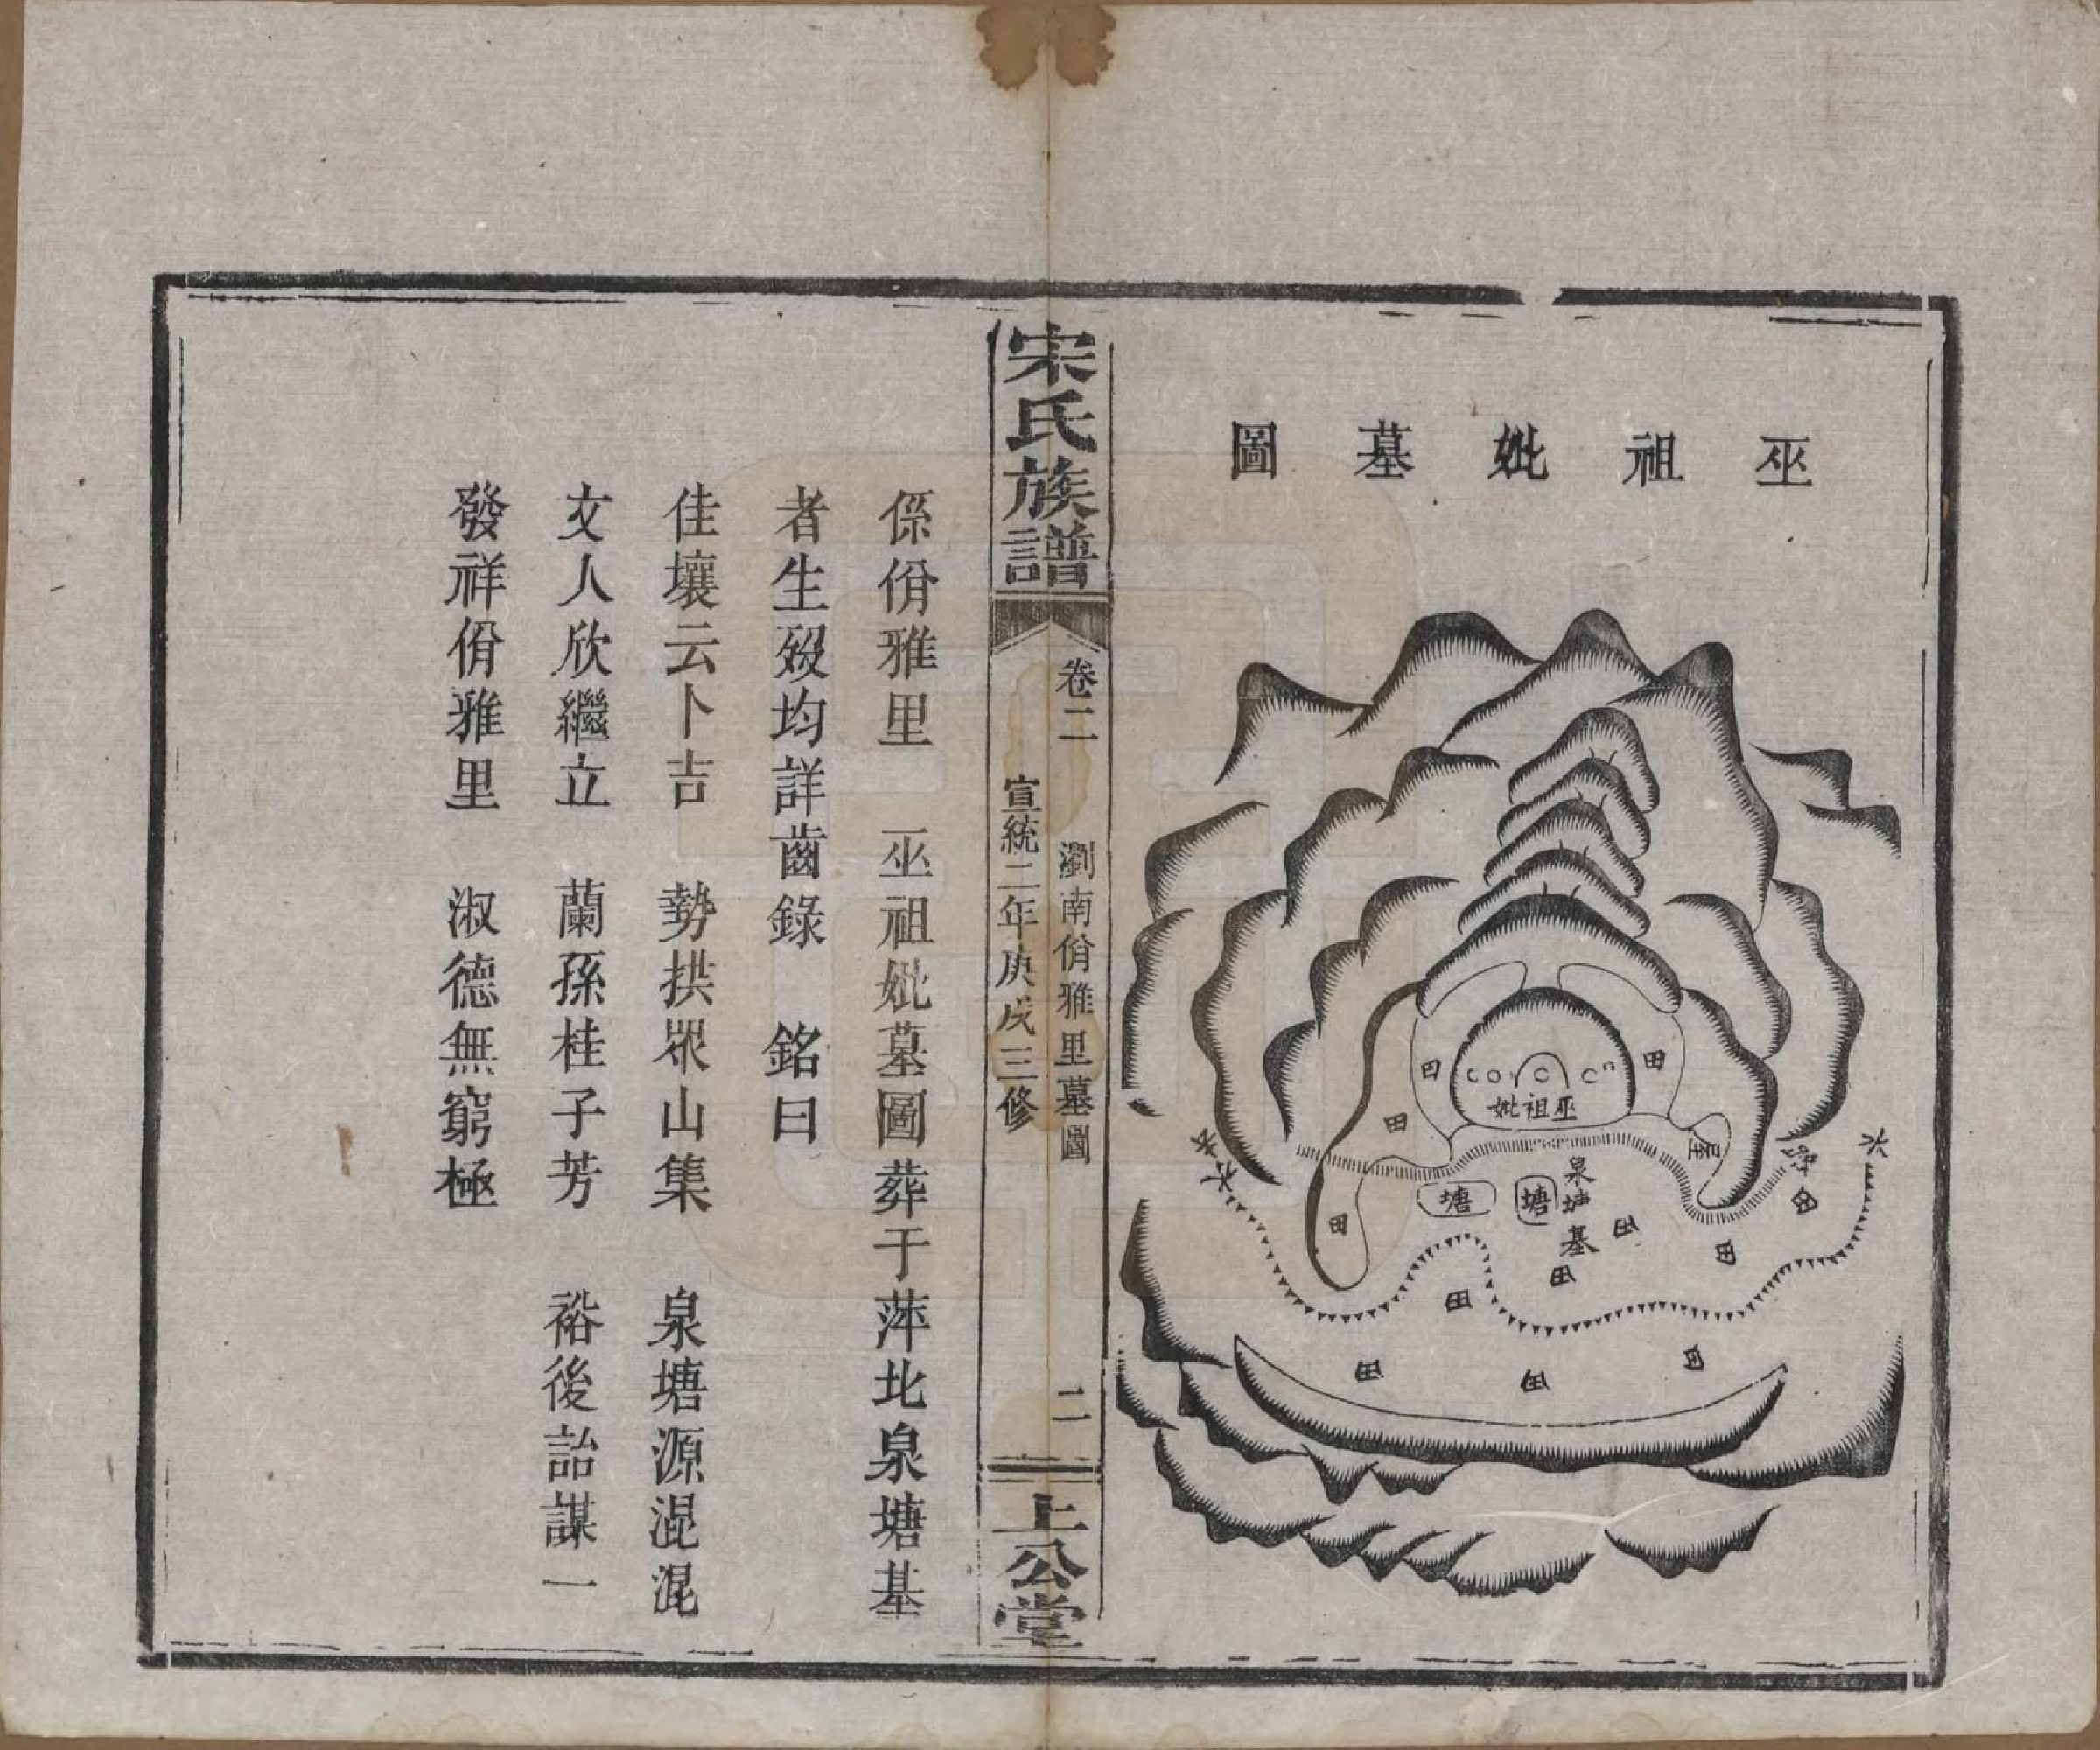 巫祖妣墓圖
巫祖妣
田
田
田
田
屋
泉塘基
塘
塘
田
田
田
田
田
田
田
田
水
水
宋氏族譜
卷二
瀏南佾雅里墓圖
二
宣統二年庚戌三修
上公堂
係佾雅里 巫祖妣墓圖葬于萍北泉塘基
者生歿均詳齒錄 銘曰
佳壤云卜吉 勢拱眾山集 泉塘源混混
文人欣繼立 蘭孫桂子芳 裕後詒謀一
發祥佾雅里 淑德無窮極